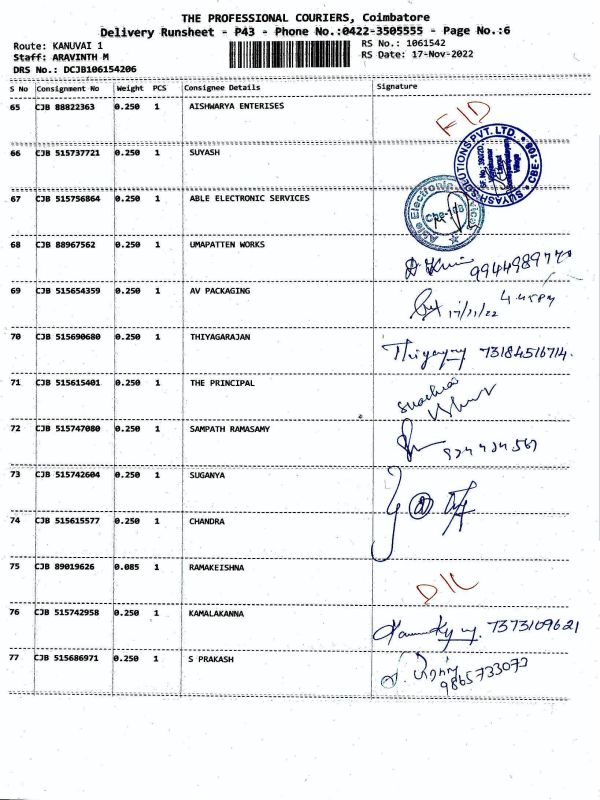 THE PROFESSIONAL COURIERS, Coimbatore
Delivery Runsheet - P43 - Phone No.:0422-3505555 - Page No.:6
Route: KANUVAI 1
RS No.: 1061542
Staff: ARAVINTH M
RS Date: 17-Nov-2022
DRS No.: DCJB106154206
S No Consignment No Weight PCS Consignee Details Signature
65 CJB 88822363 0.250 1 AISHWARYA ENTERISES
F/D
SUYASH SOLUTIONS PVT. LTD. CBE-108
66 CJB 515737721 0.250 1 SUYASH
67 CJB 515756864 0.250 1 ABLE ELECTRONIC SERVICES
Able Electronic Services
68 CJB 88967562 0.250 1 UMAPATTEN WORKS
69 CJB 515654359 0.250 1 AV PACKAGING
17/11/22 4.45PM
70 CJB 515690680 0.250 1 THIYAGARAJAN
73184516714.
71 CJB 515615401 0.250 1 THE PRINCIPAL
72 CJB 515747080 0.250 1 SAMPATH RAMASAMY
73 CJB 515742604 0.250 1 SUGANYA
74 CJB 515615577 0.250 1 CHANDRA
75 CJB 89019626 0.085 1 RAMAKEISHNA
D/L
76 CJB 515742958 0.250 1 KAMALAKANNA
7373109621
77 CJB 515686971 0.250 1 S PRAKASH
9865733073